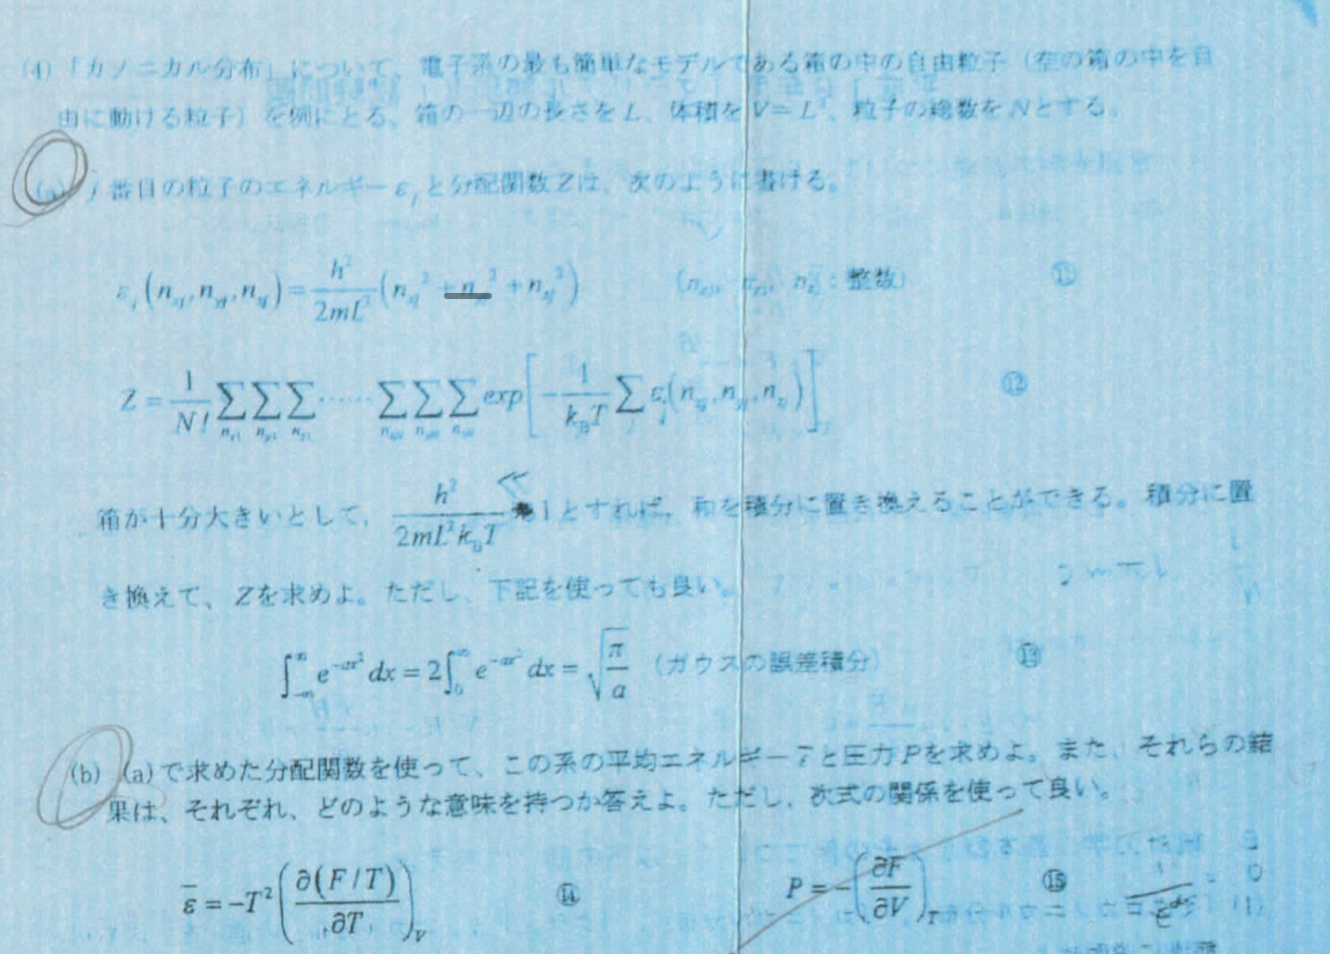 (4) 「カノニカル分布」について、電子系の最も簡単なモデルである箱の中の自由粒子（空の箱の中を自
由に動ける粒子）を例にとる。箱の一辺の長さを L、体積を V = L³、粒子の総数を N とする。
(a) j 番目の粒子のエネルギー ε_j と分配関数 Z は、次のように書ける。
ε_j (n_xj, n_yj, n_zj) = h²/2mL² (n_xj² + n_yj² + n_zj²) (n_xj, n_yj, n_zj : 整数) ⑪
Z = 1/N! Σ_{n_x1} Σ_{n_y1} Σ_{n_z1} ⋯⋯ Σ_{n_xN} Σ_{n_yN} Σ_{n_zN} exp[ −1/k_BT Σ_j ε_j (n_xj, n_yj, n_zj) ] ⑫
箱が十分大きいとして、 h²/2mL²k_BT ≪ 1 とすれば、和を積分に置き換えることができる。積分に置
き換えて、Z を求めよ。ただし、下記を使っても良い。
∫_{-∞}^{∞} e^{-ax²} dx = 2∫_0^∞ e^{-ax²} dx = √(π/a) （ガウスの誤差積分） ⑬
(b) (a) で求めた分配関数を使って、この系の平均エネルギー ε̄ と圧力 P を求めよ。また、それらの結
果は、それぞれ、どのような意味を持つか答えよ。ただし、次式の関係を使って良い。
ε̄ = −T² (∂(F/T)/∂T)_V ⑭ P = −(∂F/∂V)_T ⑮